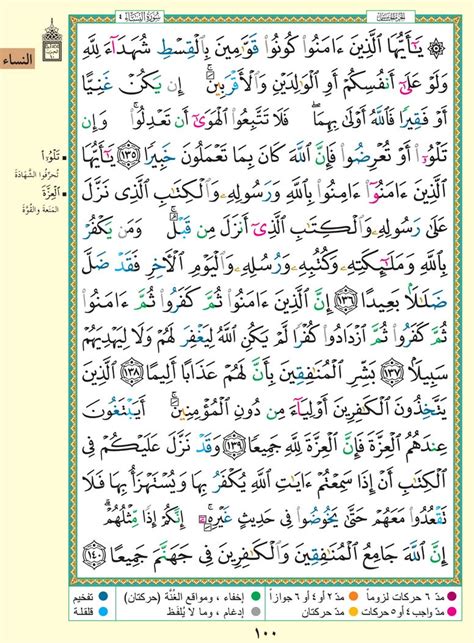 سُورَةُ النِّسَاءِ ٤
الجزء الخامس
النساء
يَٰٓأَيُّهَا ٱلَّذِينَ ءَامَنُوا۟ كُونُوا۟ قَوَّٰمِينَ بِٱلْقِسْطِ شُهَدَآءَ لِلَّهِ
وَلَوْ عَلَىٰٓ أَنفُسِكُمْ أَوِ ٱلْوَٰلِدَيْنِ وَٱلْأَقْرَبِينَ ۚ إِن يَكُنْ غَنِيًّا
أَوْ فَقِيرًا فَٱللَّهُ أَوْلَىٰ بِهِمَا ۖ فَلَا تَتَّبِعُوا۟ ٱلْهَوَىٰٓ أَن تَعْدِلُوا۟ ۚ وَإِن
تَلْوُۥٓا۟ أَوْ تُعْرِضُوا۟ فَإِنَّ ٱللَّهَ كَانَ بِمَا تَعْمَلُونَ خَبِيرًا ١٣٥ يَٰٓأَيُّهَا
ٱلَّذِينَ ءَامَنُوٓا۟ ءَامِنُوا۟ بِٱللَّهِ وَرَسُولِهِۦ وَٱلْكِتَٰبِ ٱلَّذِى نَزَّلَ
عَلَىٰ رَسُولِهِۦ وَٱلْكِتَٰبِ ٱلَّذِىٓ أَنزَلَ مِن قَبْلُ ۚ وَمَن يَكْفُرْ
بِٱللَّهِ وَمَلَٰٓئِكَتِهِۦ وَكُتُبِهِۦ وَرُسُلِهِۦ وَٱلْيَوْمِ ٱلْءَاخِرِ فَقَدْ ضَلَّ
ضَلَٰلًۢا بَعِيدًا ١٣٦ إِنَّ ٱلَّذِينَ ءَامَنُوا۟ ثُمَّ كَفَرُوا۟ ثُمَّ ءَامَنُوا۟
ثُمَّ كَفَرُوا۟ ثُمَّ ٱزْدَادُوا۟ كُفْرًا لَّمْ يَكُنِ ٱللَّهُ لِيَغْفِرَ لَهُمْ وَلَا لِيَهْدِيَهُمْ
سَبِيلًۢا ١٣٧ بَشِّرِ ٱلْمُنَٰفِقِينَ بِأَنَّ لَهُمْ عَذَابًا أَلِيمًا ١٣٨ ٱلَّذِينَ
يَتَّخِذُونَ ٱلْكَٰفِرِينَ أَوْلِيَآءَ مِن دُونِ ٱلْمُؤْمِنِينَ ۚ أَيَبْتَغُونَ
عِندَهُمُ ٱلْعِزَّةَ فَإِنَّ ٱلْعِزَّةَ لِلَّهِ جَمِيعًا ١٣٩ وَقَدْ نَزَّلَ عَلَيْكُمْ فِى
ٱلْكِتَٰبِ أَنْ إِذَا سَمِعْتُمْ ءَايَٰتِ ٱللَّهِ يُكْفَرُ بِهَا وَيُسْتَهْزَأُ بِهَا فَلَا
تَقْعُدُوا۟ مَعَهُمْ حَتَّىٰ يَخُوضُوا۟ فِى حَدِيثٍ غَيْرِهِۦٓ ۚ إِنَّكُمْ إِذًا مِّثْلُهُمْ ۗ
إِنَّ ٱللَّهَ جَامِعُ ٱلْمُنَٰفِقِينَ وَٱلْكَٰفِرِينَ فِى جَهَنَّمَ جَمِيعًا ١٤٠
تَلْوُۥا
تُحرِّفُوا الشَّهَادَةَ
الْعِزَّةَ
المَنَعَةَ والقُوَّةَ
مدّ ٦ حركات لزوماً
مدّ ٢ أو ٤ أو ٦ جوازاً
إخفاء، ومواقع الغُنَّة (حركتان)
تفخيم
مدّ واجب ٤ أو ٥ حركات
مدّ حركتان
إدغام، وما لا يُلفَظ
قلقلة
١٠٠